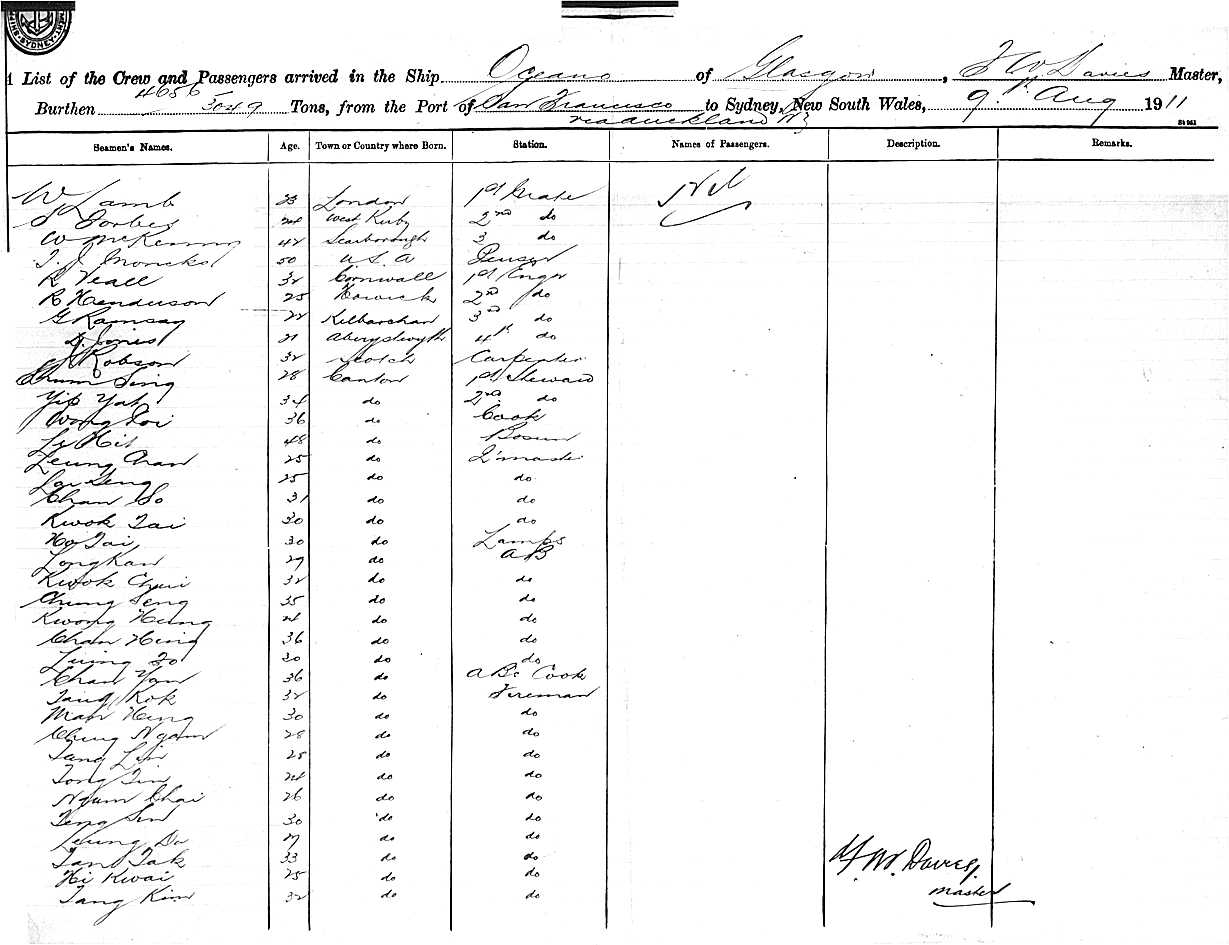 SYDNEY
List of the Crew and Passengers arrived in the Ship Oceano of Glasgow, F W Davies Master,
4656
Burthen 3049 Tons, from the Port of San Francisco to Sydney, New South Wales, 9th Aug 1911
via Auckland NZ
Seamen's Names. Age. Town or Country where Born. Station. Names of Passengers. Description. Remarks.
W Lamb 23 London 1st Mate Nil
Forbes 24 West Kirby 2nd do
W McKenning 42 Scarborough 3 do
T. J. Moncks 50 U S A
R Veale 32 Cornwall 1st Engr
R Henderson 25 Hawick 2nd do
G Ramsay 22 Kilbarchan 3rd do
D. Jones 21 Aberystwyth 4th do
J Robson 32 Scotch Carpenter
Chum Sing 28 Canton 1st Steward
Yip Yat 34 do 2nd do
Wong Loi 36 do Cook
Li Hit 48 do Bosun
Leung Chan 25 do Q'master
Loi Seng 25 do do
Chan So 31 do do
Kwok Tai 30 do do
Ho Tai 30 do Lamps
Long Kan 29 do AB
Kwok Chui 32 do do
Chung Seng 35 do do
Kwong Hung 24 do do
Chan Hing 36 do do
Leung To 30 do do
Chan Yow 36 do ABs Cook
Tang Kok 32 do Fireman
Man Hing 30 do do
Ching Ngam 28 do do
Tang Lin 25 do do
Tong Tin 24 do do
Ngum Chai 26 do do
Teng Sin 30 do do
Leung Do 27 do do
Tan Tak 33 do do F. W. Davies,
Hi Kwai 25 do do Master
Tang Kim 32 do do